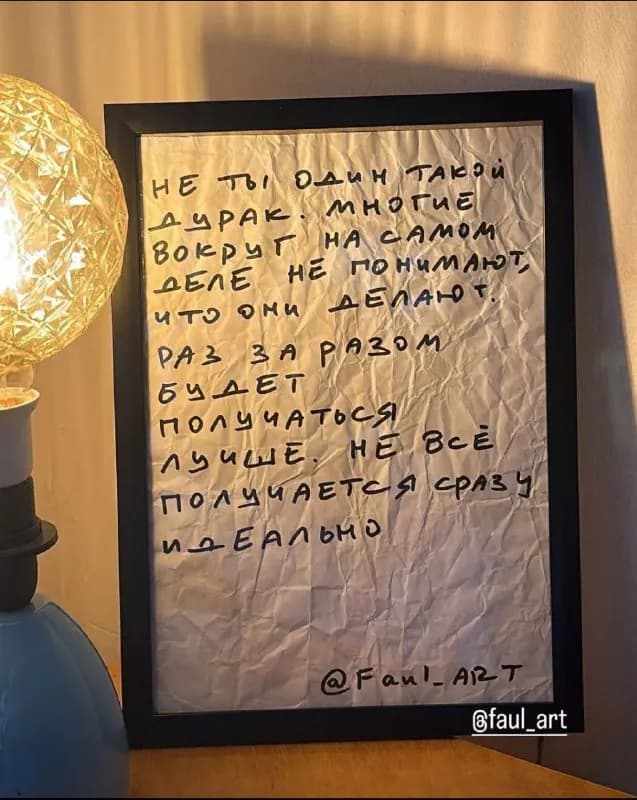 НЕ ТЫ ОДИН ТАКОЙ
ДУРАК. МНОГИЕ
ВОКРУГ НА САМОМ
ДЕЛЕ НЕ ПОНИМАЮТ,
ЧТО ОНИ ДЕЛАЮТ.
РАЗ ЗА РАЗОМ
БУДЕТ
ПОЛУЧАТЬСЯ
ЛУЧШЕ. НЕ ВСЁ
ПОЛУЧАЕТСЯ СРАЗУ
ИДЕАЛЬНО
@Faul_ART
@faul_art